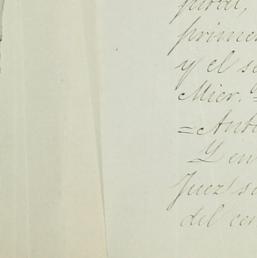 primer
y el s
Mier.
=Ant
Y en
Juez s
del ce